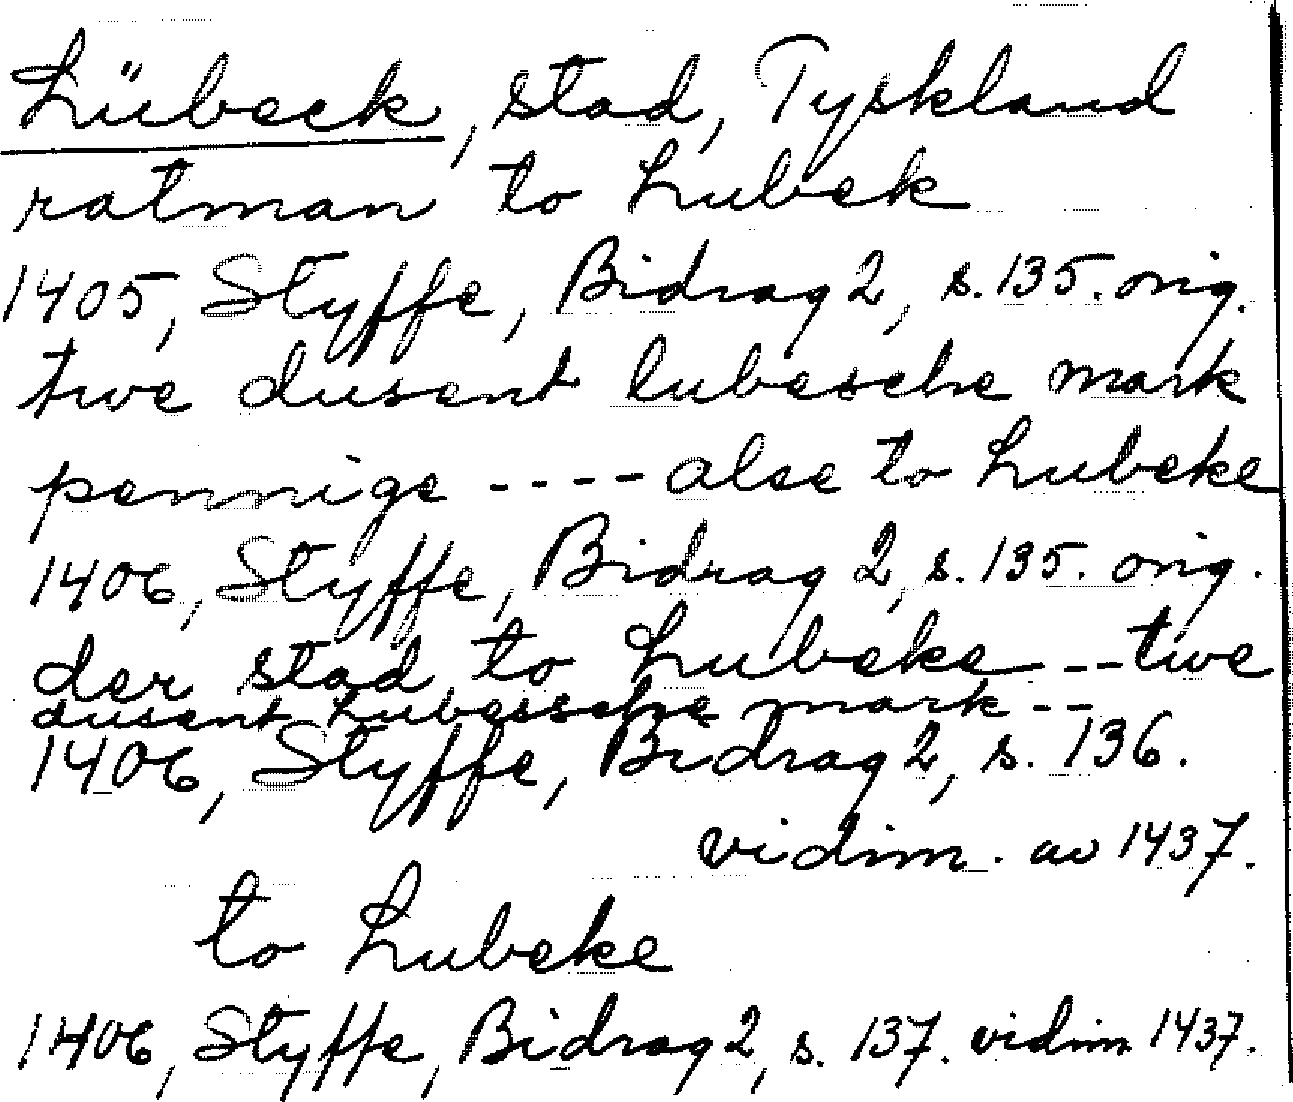 Lübeck, stad, Tyskland
ratman to Lubek
1405, Styffe, Bidrag 2, s. 135. orig.
twe dusent lubesche mark
pennige ---- alse to Lubeke
1406, Styffe, Bidrag 2, s. 135. orig.
der stad to Lubeke -- twe
dusent Lubessche mark --
1406, Styffe, Bidrag 2, s. 136.
vidim. av 1437.
to Lubeke
1406, Styffe, Bidrag 2, s. 137. vidim 1437.